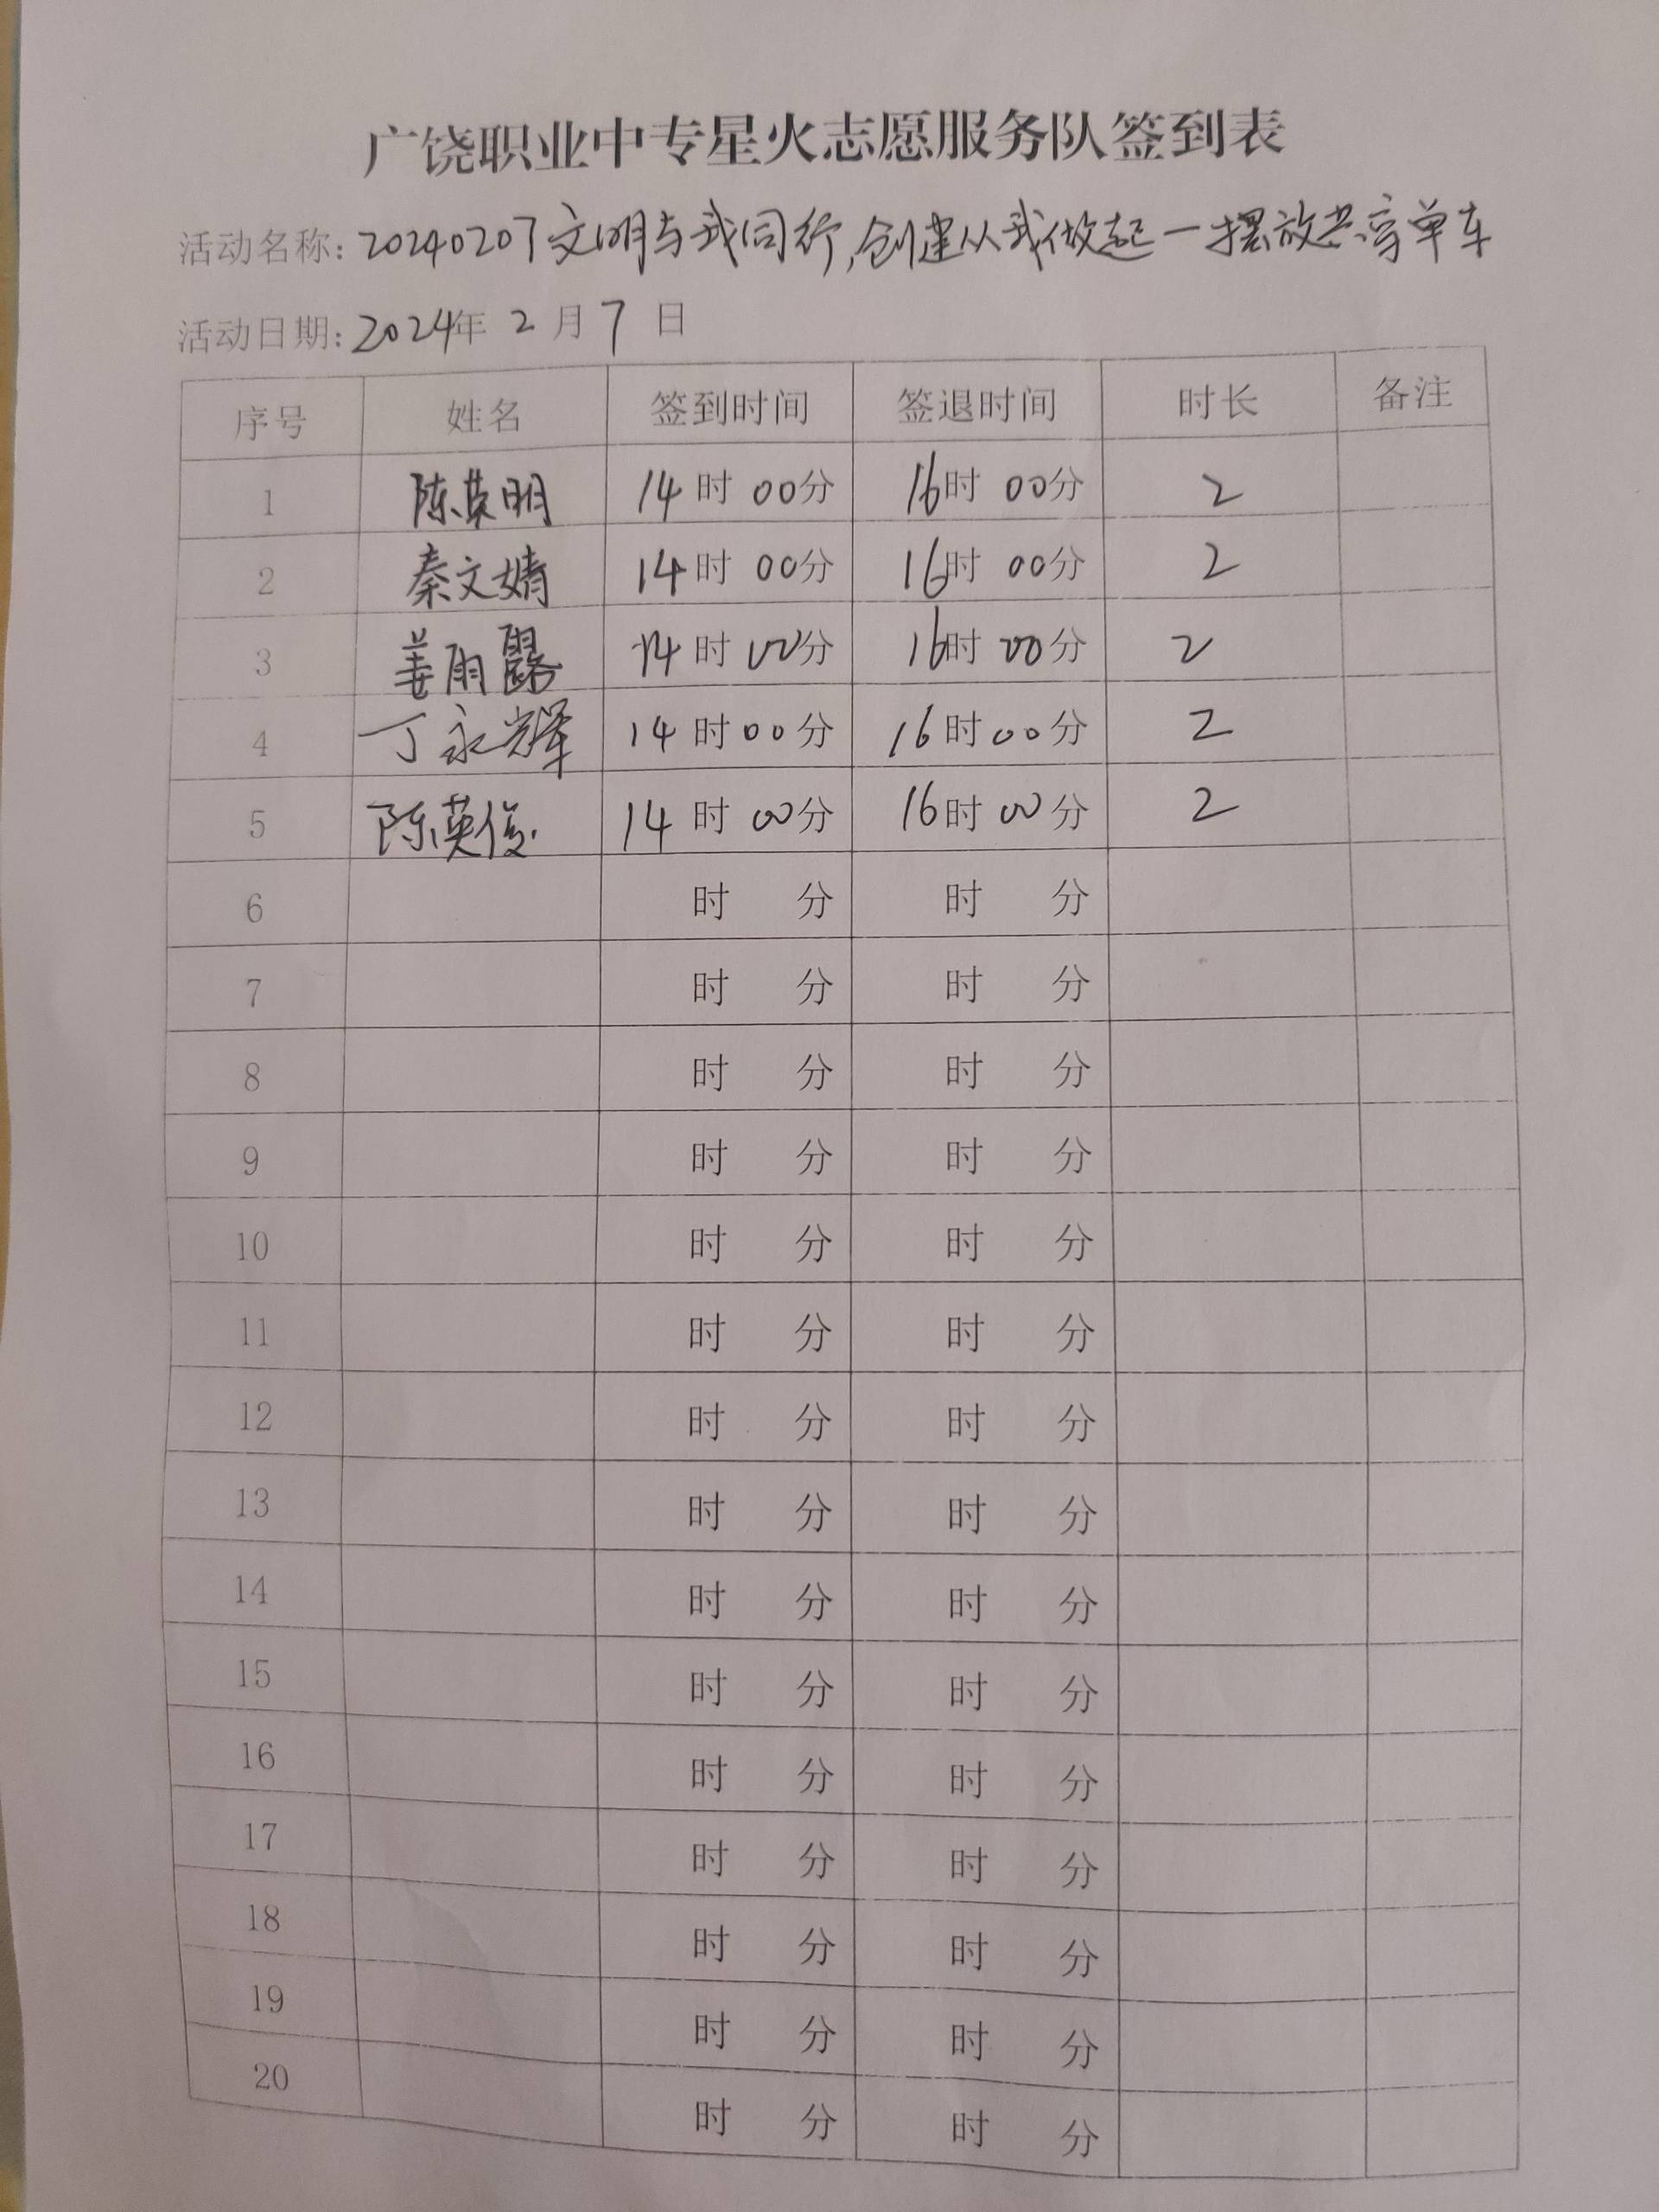 广饶职业中专星火志愿服务队签到表
活动名称: 20240207文明与我同行,创建从我做起一摆放共享单车
活动日期: 2024年 2 月 7 日
序号 姓名 签到时间 签退时间 时长 备注
1 陈英明 14时00分 16时00分 2
2 秦文婧 14时00分 16时00分 2
3 姜雨露 14时00分 16时00分 2
4 丁永辉 14时00分 16时00分 2
5 陈英俊 14时00分 16时00分 2
6 时 分 时 分
7 时 分 时 分
8 时 分 时 分
9 时 分 时 分
10 时 分 时 分
11 时 分 时 分
12 时 分 时 分
13 时 分 时 分
14 时 分 时 分
15 时 分 时 分
16 时 分 时 分
17 时 分 时 分
18 时 分 时 分
19 时 分 时 分
20 时 分 时 分